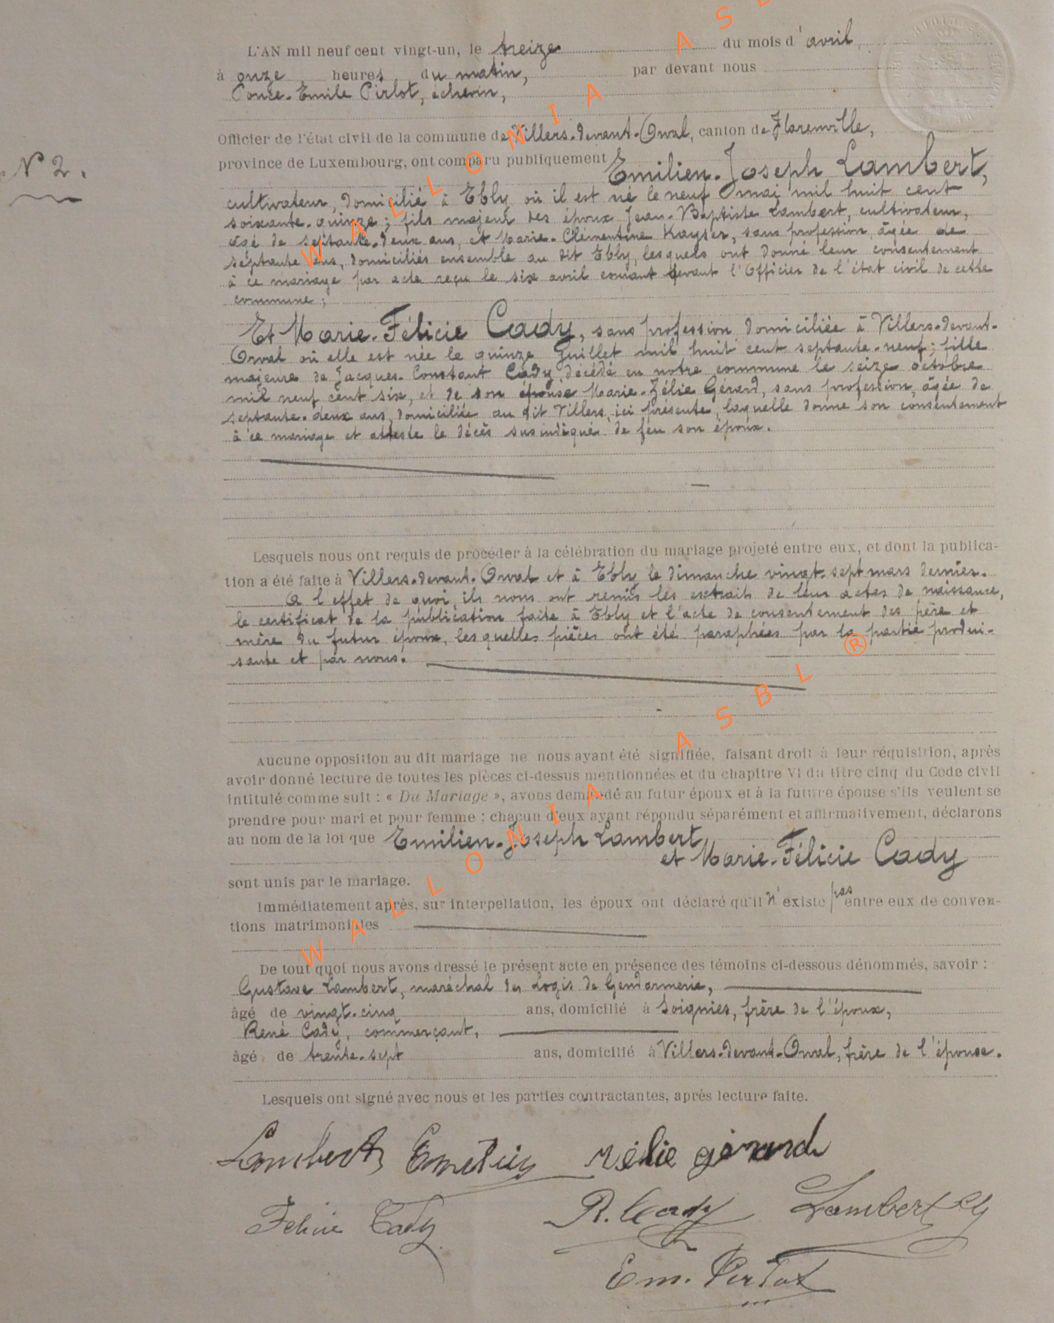 L'AN mil neuf cent vingt-un, le treize du mois d'avril,
à onze heures du matin, par devant nous
Ponce-Emile Pirlot, échevin,
Officier de l'état civil de la commune de Villers-devant-Orval, canton de Florenville,
N° 2.
province de Luxembourg, ont comparu publiquement Emilien-Joseph Lambert,
cultivateur, domicilié à Ebly où il est né le neuf mai mil huit cent
soixante-quinze; fils majeur des époux Jean-Baptiste Lambert, cultivateur,
âgé de septante-deux ans, et Marie-Clémentine Kayser, sans profession, âgée de
septante ans, domiciliés ensemble au dit Ebly, lesquels ont donné leur consentement
à ce mariage par acte reçu le six avril courant devant l'Officier de l'état civil de cette
commune;
Et Marie-Félicie Cady, sans profession domiciliée à Villers-devant-
Orval où elle est née le quinze Juillet mil huit cent septante-neuf; fille
majeure de Jacques-Constant Cady, décédé en notre commune le seize octobre
mil neuf cent six, et de son épouse Marie-Zélie Gérard, sans profession, âgée de
septante-deux ans, domiciliée au dit Villers, ici présente, laquelle donne son consentement
à ce mariage et atteste le décès susindiqué de feu son époux.
Lesquels nous ont requis de procéder à la célébration du mariage projeté entre eux, et dont la publica-
tion a été faite à Villers-devant-Orval et à Ebly le dimanche vingt-sept mars dernier.
A l'effet de quoi, ils nous ont remis les extraits de leur actes de naissance,
le certificat de la publication faite à Ebly et l'acte de consentement des père et
mère du futur époux, lesquelles pièces ont été paraphées par la partie produi-
sante et par nous.
Aucune opposition au dit mariage ne nous ayant été signifiée, faisant droit à leur réquisition, après
avoir donné lecture de toutes les pièces ci-dessus mentionnées et du chapitre VI du titre cinq du Code civil
intitulé comme suit : « Du Mariage », avons demandé au futur époux et à la future épouse s'ils veulent se
prendre pour mari et pour femme ; chacun d'eux ayant répondu séparément et affirmativement, déclarons
au nom de la loi que Emilien-Joseph Lambert
et Marie-Félicie Cady
sont unis par le mariage.
Immédiatement après, sur interpellation, les époux ont déclaré qu'il n'existe pas entre eux de conven-
tions matrimoniales
De tout quoi nous avons dressé le présent acte en présence des témoins ci-dessous dénommés, savoir :
Gustave Lambert, maréchal des Logis de Gendarmerie,
âgé de vingt-cinq ans, domicilié à Soignies, frère de l'époux,
René Cady, commerçant,
âgé de trente-sept ans, domicilié à Villers-devant-Orval, frère de l'épouse.
Lesquels ont signé avec nous et les parties contractantes, après lecture faite.
Lambert Emilien Zélie gérard
Felicie Cady R. Cady Lambert G
Em. Pirlot
WALLONIA ASBL ®
WALLONIA ASBL